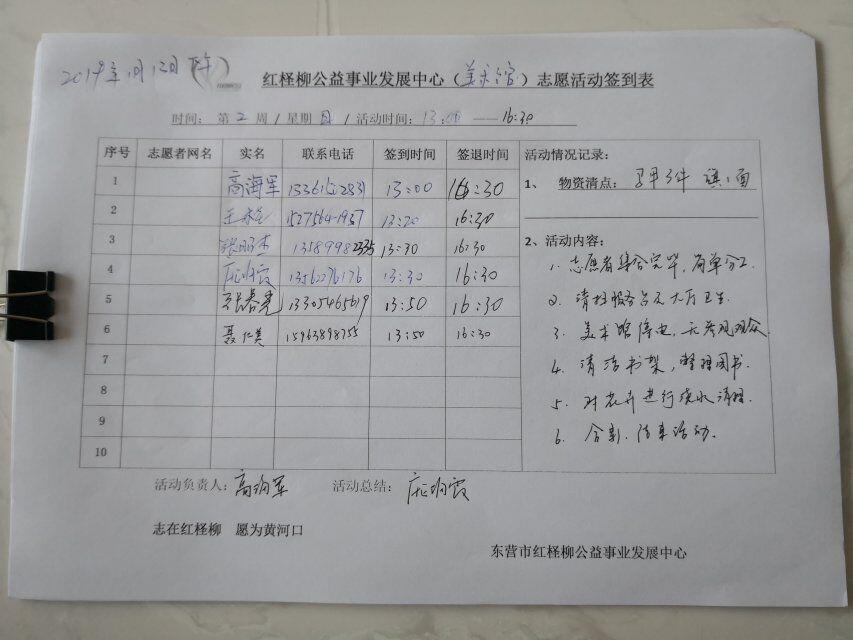 2019年1月12日（下午）
红柽柳公益事业发展中心（美术馆）志愿活动签到表
时间： 第 2 周 / 星期 日 / 活动时间：13:00 —— 16:30
序号 志愿者网名 实名 联系电话 签到时间 签退时间
1 高海军 13:00 16:30
2 13:20 16:30
3 张明杰 13589982335 13:30 16:30
4 13562276176 13:30 16:30
5 张春亮 13305465619 13:50 16:30
6 聂仁美 15963898755 13:50 16:30
7
8
9
10
活动情况记录：
1、 物资清点：马甲3件 旗1面
2、活动内容：
1. 志愿者集合完毕，简单分工
2. 清扫服务台及大厅卫生
3. 美术馆停电，无参观观众
4. 清洁书架，整理图书.
5. 对花卉进行浇水清理.
6. 合影.结束活动.
活动负责人：高海军 活动总结：
志在红柽柳 愿为黄河口
东营市红柽柳公益事业发展中心